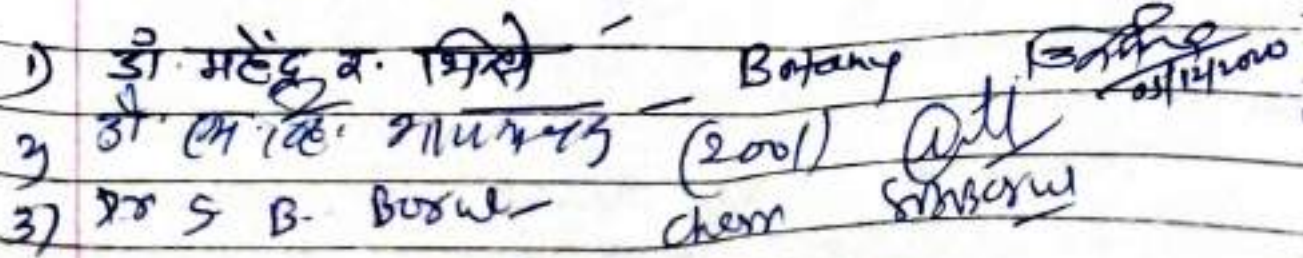 1) डॉ. महेंद्र र. भिसे Botany 03/12/2020
2) डॉ. एम. व्हि. (2001)
3) Dr S B. Borul Chem SBBorul